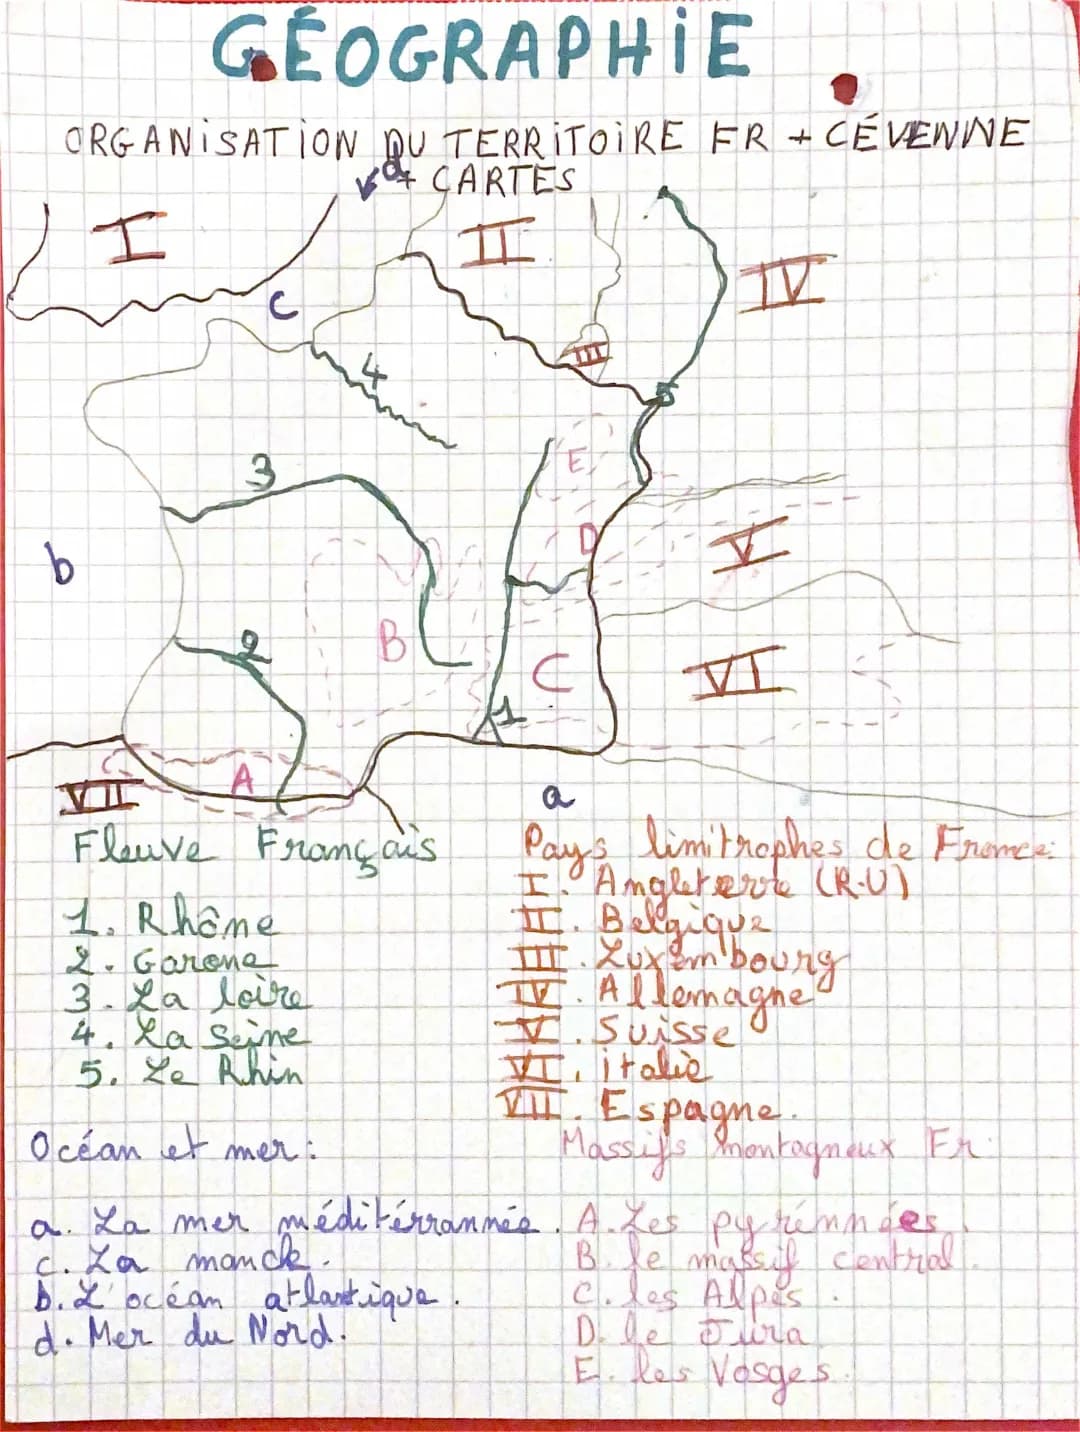 GÉOGRAPHIE
ORGANISATION DU TERRITOIRE FR + CÉVENNE
+ CARTES
d
I
II
IV
C
III
4
5
3
E
D
V
b
2
B
C
VI
1
A
VII
a
Fleuve Français
1. Rhône
2. Garone
3. La loire
4. La Seine
5. Le Rhin
Pays limitrophes de France:
I. Angleterre (R.U)
II. Belgique
III. Luxembourg
IV. Allemagne
V. Suisse
VI. italie
VII. Espagne.
Océan et mer:
a. La mer méditérrannée.
c. La manck.
b. L'océan atlantique.
d. Mer du Nord.
Massifs montagneux Fr
A. Les pyrénnées.
B. le massif central.
C. les Alpes.
D. le Jura
E. les Vosges.